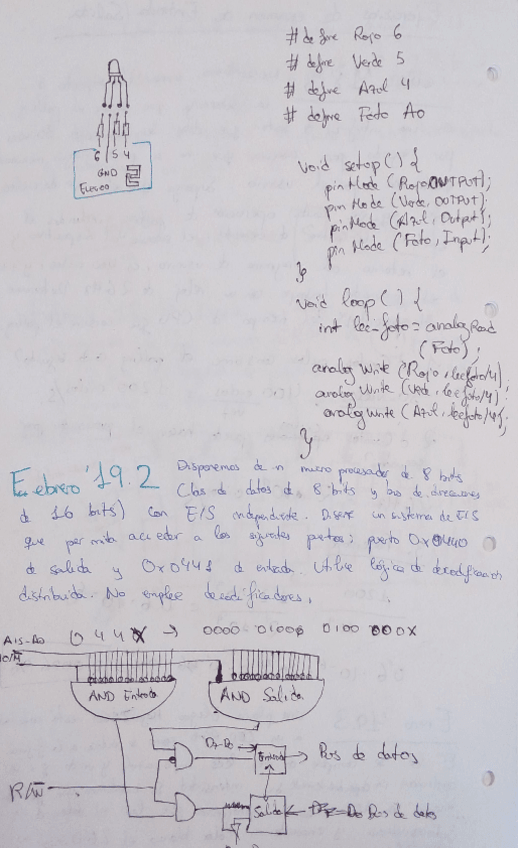 # define Rojo 6
# define Verde 5
# define Azul 4
# define Foto A0
6 5 4
GND
void setup() {
pinMode (Rojo, OUTPUT);
pinMode (Verde, OUTPUT);
pinMode (Azul, Output);
pinMode (Foto, Input);
}
void loop() {
int lec-foto = analogRead
(Foto);
analog Write (Rojo, lecfoto/4);
analog Write (Verde, lecfoto/4);
analog Write (Azul, lecfoto/4);
}
Febrero '19.2
Disponemos de n micro procesador de 8 bits
(bus de datos de 8 bits y bus de direcciones
de 16 bits) con E/S independiente. Diseñe un sistema de E/S
que permita acceder a los siguientes puertos: puerto 0x0440
de salida y 0x0441 de entrada. Utilice lógica de decodificación
distribuida. No emplee decodificadores.
A15-A0 044X → 0000 0100 0100 000X
IO/M
AND Entrada AND Salida
D7-D0 Entrada → Bus de datos
R/W
Salida D7-D0 Bus de datos